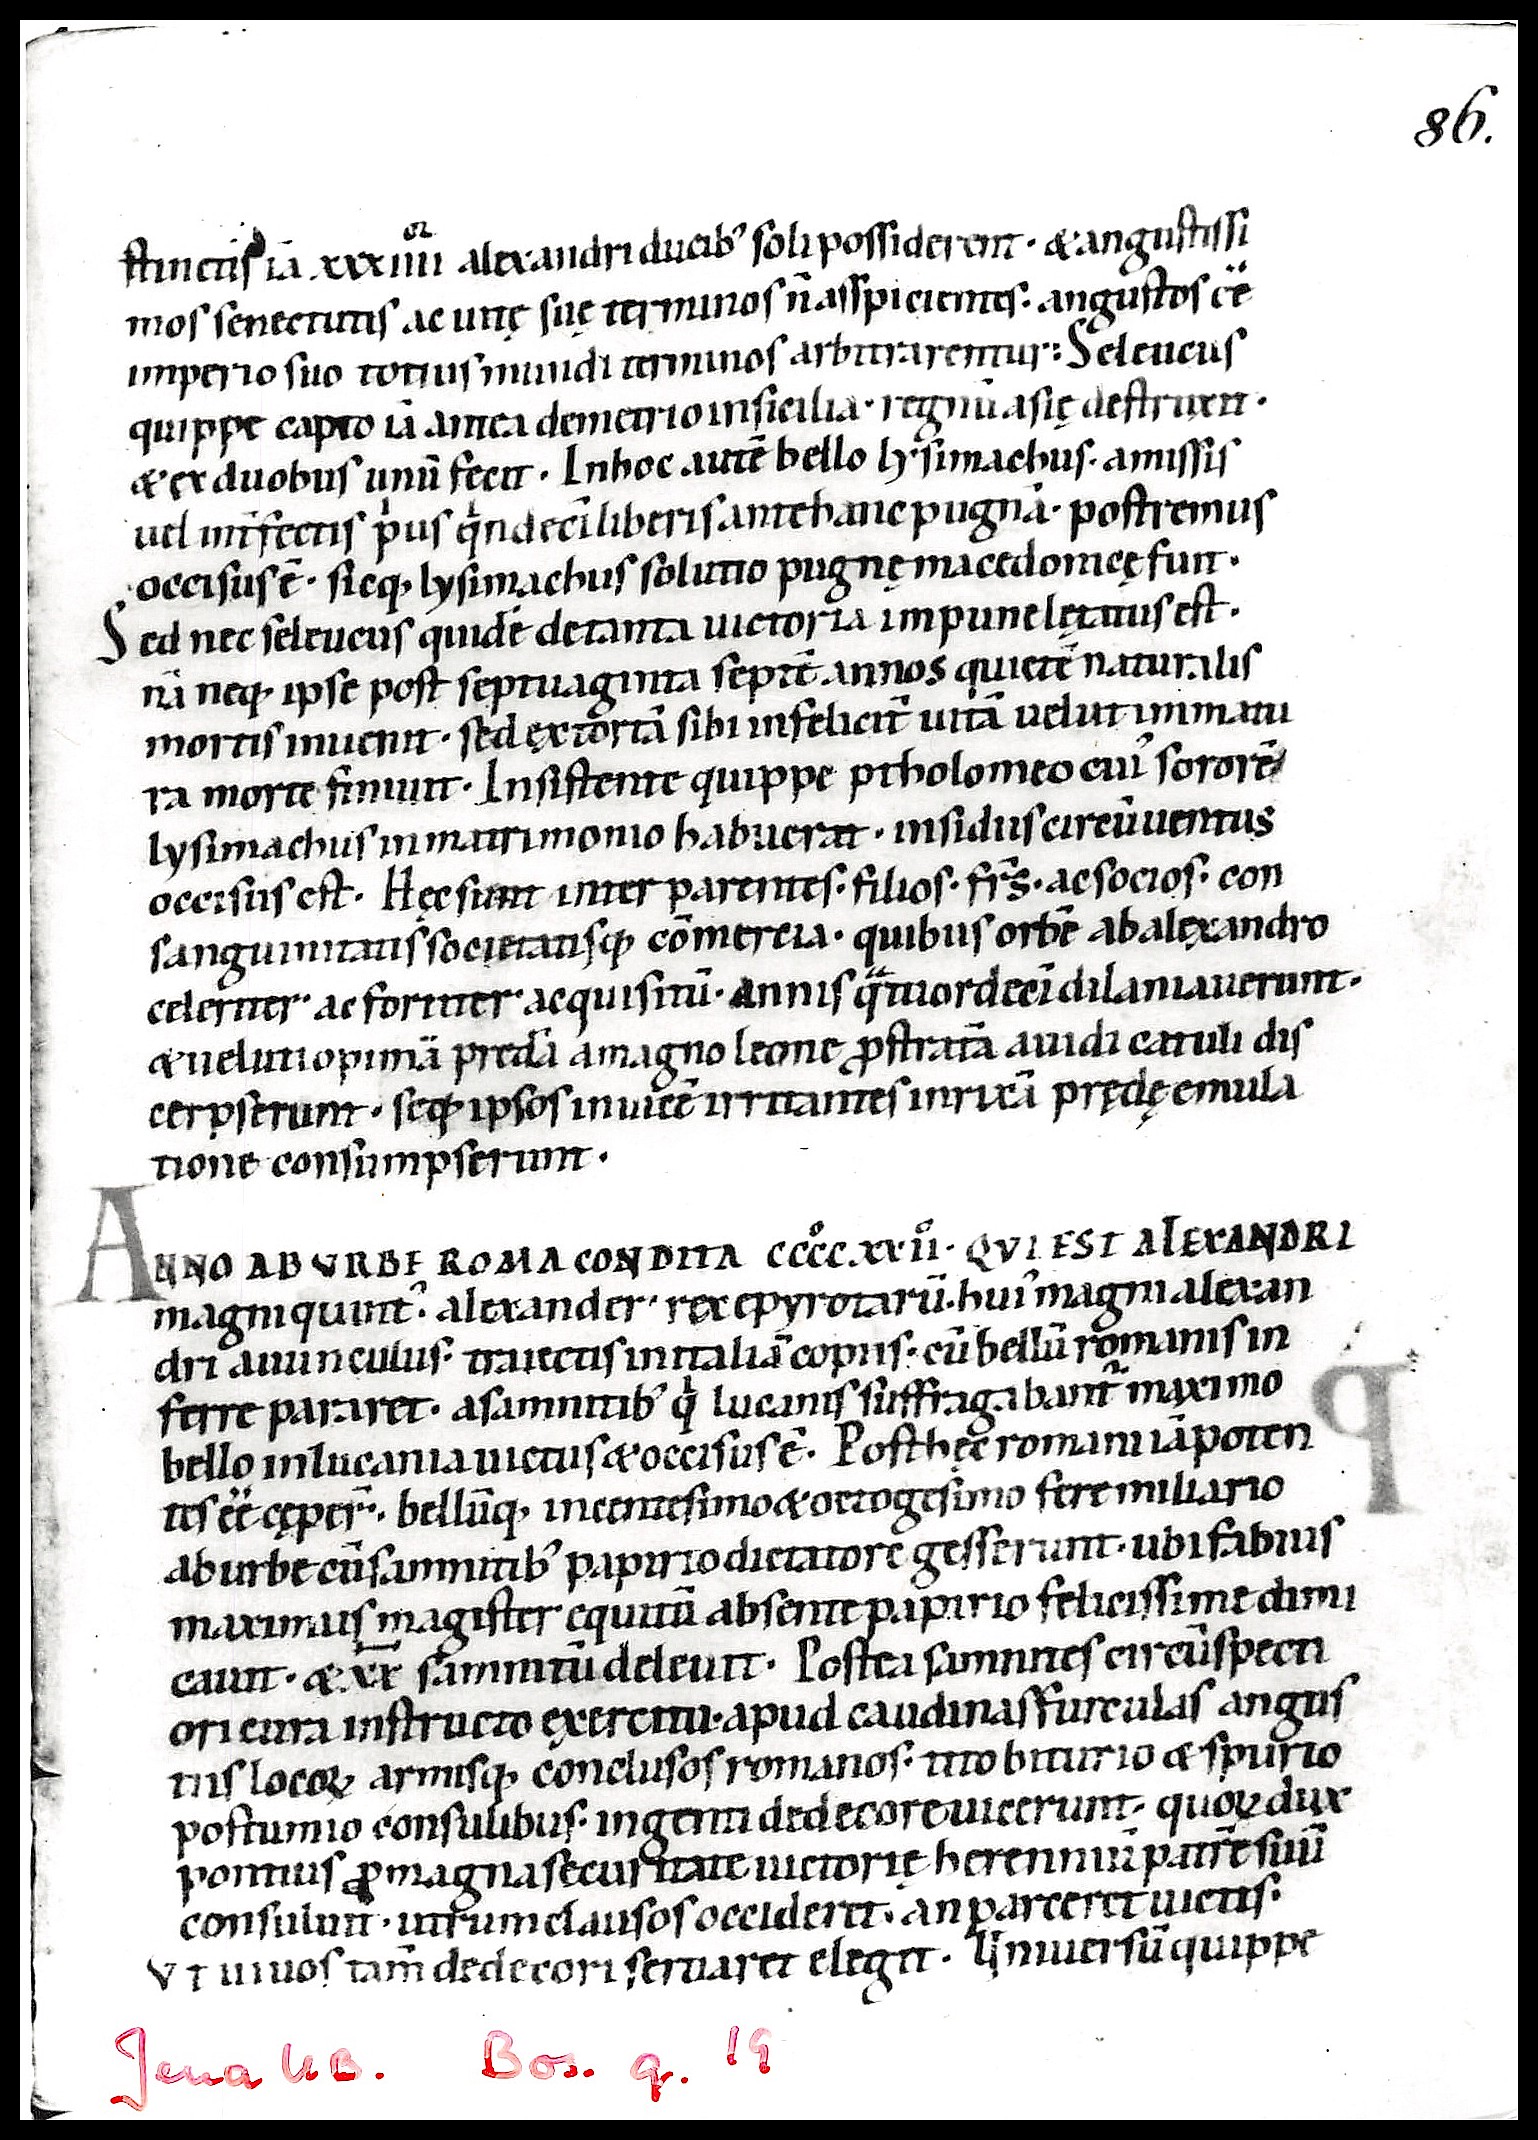 86.
stinctis iā xxxiiii^or alexandri ducib' soli possiderent· & angustissi
mos senectutis ac uitę suę terminos ñ asspicientes· angustos ēē
imperio suo totius mundi terminos arbitrarentur: Seleucus
quippe capto iā antea demetrio in sicilia· regnū asię destruxit·
& ex duobus unū fecit· In hoc autē bello lysimachus· amissis
uel int̄fectis p̍us q̍ndeci̅ liberis ante hanc pugnā· postremus
occisus ē· sicq; lysimachus solutio pugnę macedonicę fuit·
Sed nec seleucus quidē de tanta uictoria impune lętatus est·
nā neq; ipse post septuaginta septē annos quietē naturalis
mortis inuenit· sed ęxtortā sibi infelicit̄ uitā uelut immatu
ra morte finiuit· Insistente quippe ptholomeo cui' sororē
lysimachus in matrimonio habuerat· insidiis circūuentus
occisus est· Hęc sunt inter parentes· filios· fr̄s· ac socios· con
sanguinitatis societatisq; cōmercia· quibus orbē ab alexandro
celeriter· ac fortiter acquisitū· annis q̈ttuordeci̅ dilaniauerunt·
& uelut opimā predā a magno leone ꝓstratā auidi catuli dis
cerpserunt· seq; ipsos inuicē irritantes in rixā prędę emula
tione consumpserunt·
ANNO AB VRBE ROMA CONDITA CCCC.XXII^o· QVI EST ALEXANDRI
magni quint'· alexander· rex epyrotarū· hui' magni alexan
dri auunculus· traiectis in italiā copiis· cū bellū romanis in
ferre pararet· a samnitib' q̍ lucanis suffragabant̃ maximo
bello in lucania uictus & occisus ē· Post hęc romani iā poten
tes ēē cęper̄· bellūq; in centesimo & octogesimo fere miliario
ab urbe cū samnitib' papirio dictatore gesserunt· ubi fabius
maximus magister equitū absente papirio felicissime dimi
cauit· & x̅x̅ samnitū deleuit· Postea samnites circūspecti
ori cura instructo exercitu· apud caudinas furculas angus
tiis locoꝝ armisq; conclusos romanos· tito biturio & spurio
postumio consulibus· ingenti dedecore uicerunt· quoꝝ dux
pontius ꝓ magna securitate uictorię herenniū patrē suū
consuluit· utrum clausos occideret· an parceret uictis·
Vt uiuos tam̄ dedecori seruaret elegit· Uniuersū quippe
Jena UB. Bos. q. 19